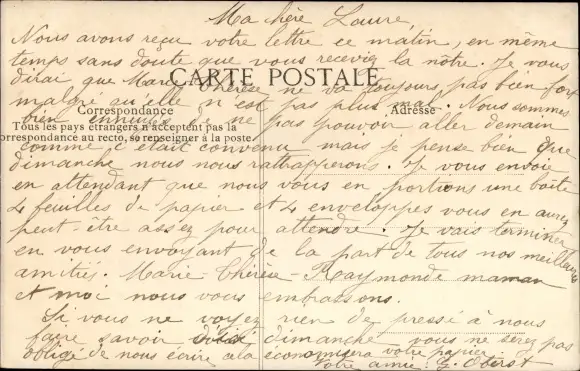 Ma chère Laure,
Nous avons reçu votre lettre ce matin, en même
temps sans doute que vous receviez la nôtre. Je vous
dirai que Marie Thérèse ne va toujours pas bien fort
CARTE POSTALE
malgré qu'elle n'est pas plus mal. Nous sommes
Correspondance
Adresse
bien ennuiés de ne pas pouvoir aller demain
Tous les pays étrangers n'acceptent pas la
correspondance au recto, se renseigner à la poste.
comme c'était convenu mais je pense bien que
dimanche nous nous rattrapperons. Je vous envoie
en attendant que nous vous en portions une boîte
4 feuilles de papier et 4 enveloppes vous en aurez
peut-être assez pour attendre. Je vais terminer
en vous envoyant de la part de tous nos meilleures
amitiés. Marie-Thérèse-Raymonde maman
et moi nous vous embrassons.
Si vous ne voyez rien de pressé à nous
faire savoir d'ici dimanche vous ne serez pas
obligé de nous écrire à la économisera votre papier.
Votre amie: G. Oberst